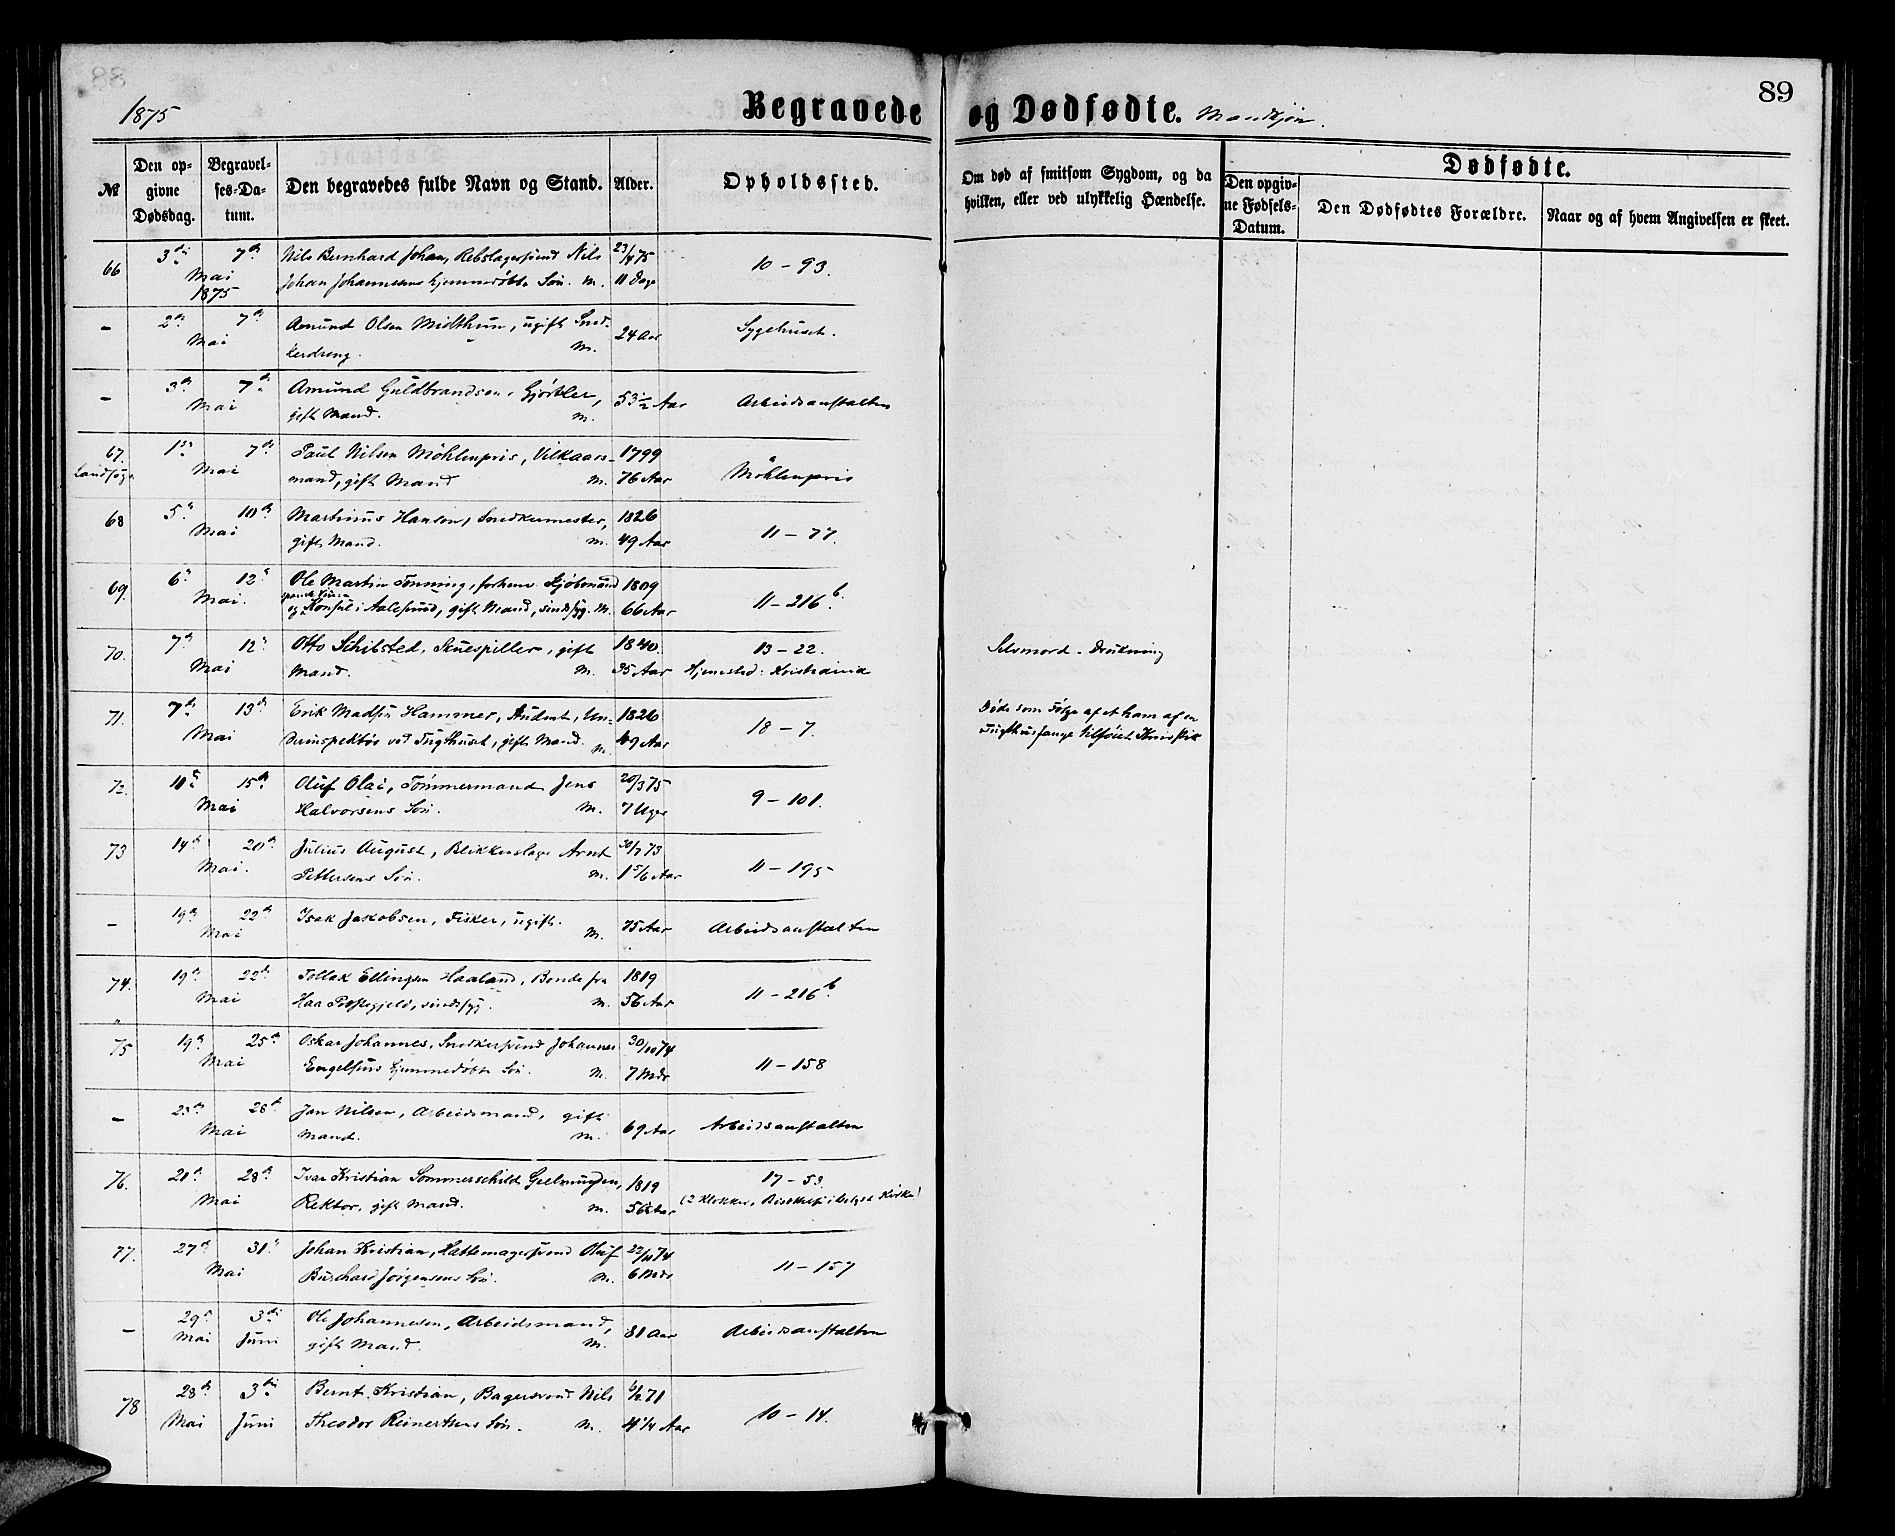 1875
Begravede og Dødfødte. Mandkjøn.
89
№
Den opgivne Dødsdag.
Begravelses-Datum.
Den begravedes fulde Navn og Stand.
Alder.
Opholdssted.
Om død af smitsom Sygdom, og da hvilken, eller ved ulykkelig Hændelse.
Dødfødte.
Den opgivne Fødsels-Datum.
Den Dødfødtes Forældre.
Naar og af hvem Angivelsen er skeet.
66 3die 7de Nils Bernhard Johan, Rebslagersvend Nils 23/4 75 10 – 93.
Mai 1875 Johan Johannesens hjemmedøbte Søn. M. 11 Dage
– 2den 7de Amund Olsen Midthun, ugift Sned- 24 Aar Sygehuset.
Mai kerdreng. M.
– 3die 7de Amund Guldbrandsen, Gjørtler, 53 ½ Aar Arbeidsanstalten
Mai gift Mand. M.
67. 1ste 7de Paul Nilsen Møhlenpris, Vilkaars- 1799 Møhlenpris
Landsogn Mai mand, gift Mand M. 76 Aar
68 5te 10de Martinius Hansen, Snedkermester, 1826 11 – 77.
Mai gift Mand. M. 49 Aar
69. 6te 12te Ole Martin Tonning, forhenv. Kjøbmand 1809 11 – 216 b.
Mai. og Konsul i Aalesund, gift Mand, sindssyg. M. 66 Aar
70. 7de 12te Otto Schibsted, Skuespiller, gift 1840 13 – 22. Selvmord – Drukning
Mai Mand. M. 35 Aar Hjemsted: Kristiania
71. 7de 13de Erik Madsen Hammer, Student, Un- 1826 18 – 7. Døde som Følge af et ham af en
Mai derinspektør ved Tugthuset, gift Mand. M. 49 Aar Tugthusfange tilføiet Knivstik
72. 10de 15de Oluf Olai, Tømmermand Jens 20/3 75 9 – 101.
Mai Halvorsens Søn. M. 7 Uger
73 14de 20de Julius August, Blikkenslager Arnt 30/7 73 11 – 195
Mai. Pettersens Søn. M. 1 5/6 Aar
– 19de 22de Isak Jakobsen, Fisker, ugift. 75 Aar Arbeidsanstalten
Mai M.
74. 19de 22de Tollak Ellingsen Haaland, Bonde fra 1819 11 – 216 b.
Mai Haa Præstegjeld, sindssyg. M. 56 Aar
75 19de 25de Oskar Johannes, Snedkersvend Johannes 30/10 74 11 – 158
Mai Engelsens hjemmedøbte Søn. M. 7 Mdr
– 23de 28de Jan Nilsen, Arbeidsmand, gift 69 Aar Arbeidsanstalten
Mai Mand. M.
76. 21de 28de Ivar Kristian Sommerschild Geelmuyden, 1819 17 – 53.
Mai Rektor, gift Mand. M. 56 Aar (2 Klokker, Kirke)
77. 27de 31te Johan Kristian, Hattemagersvend Oluf 22/11 74 11 – 157
Mai Burchard Jørgensens Søn. M. 6 Mdr
– 29de 3die Ole Johannesen, Arbeidsmand, 81 Aar Arbeidsanstalten
Mai Juni gift Mand. M.
78 28de 3die Bernt Kristian, Bagersvend Nils 6/2 71 10 – 14.
Mai Juni Theodor Reinertsens Søn. M. 4 1/4 Aar